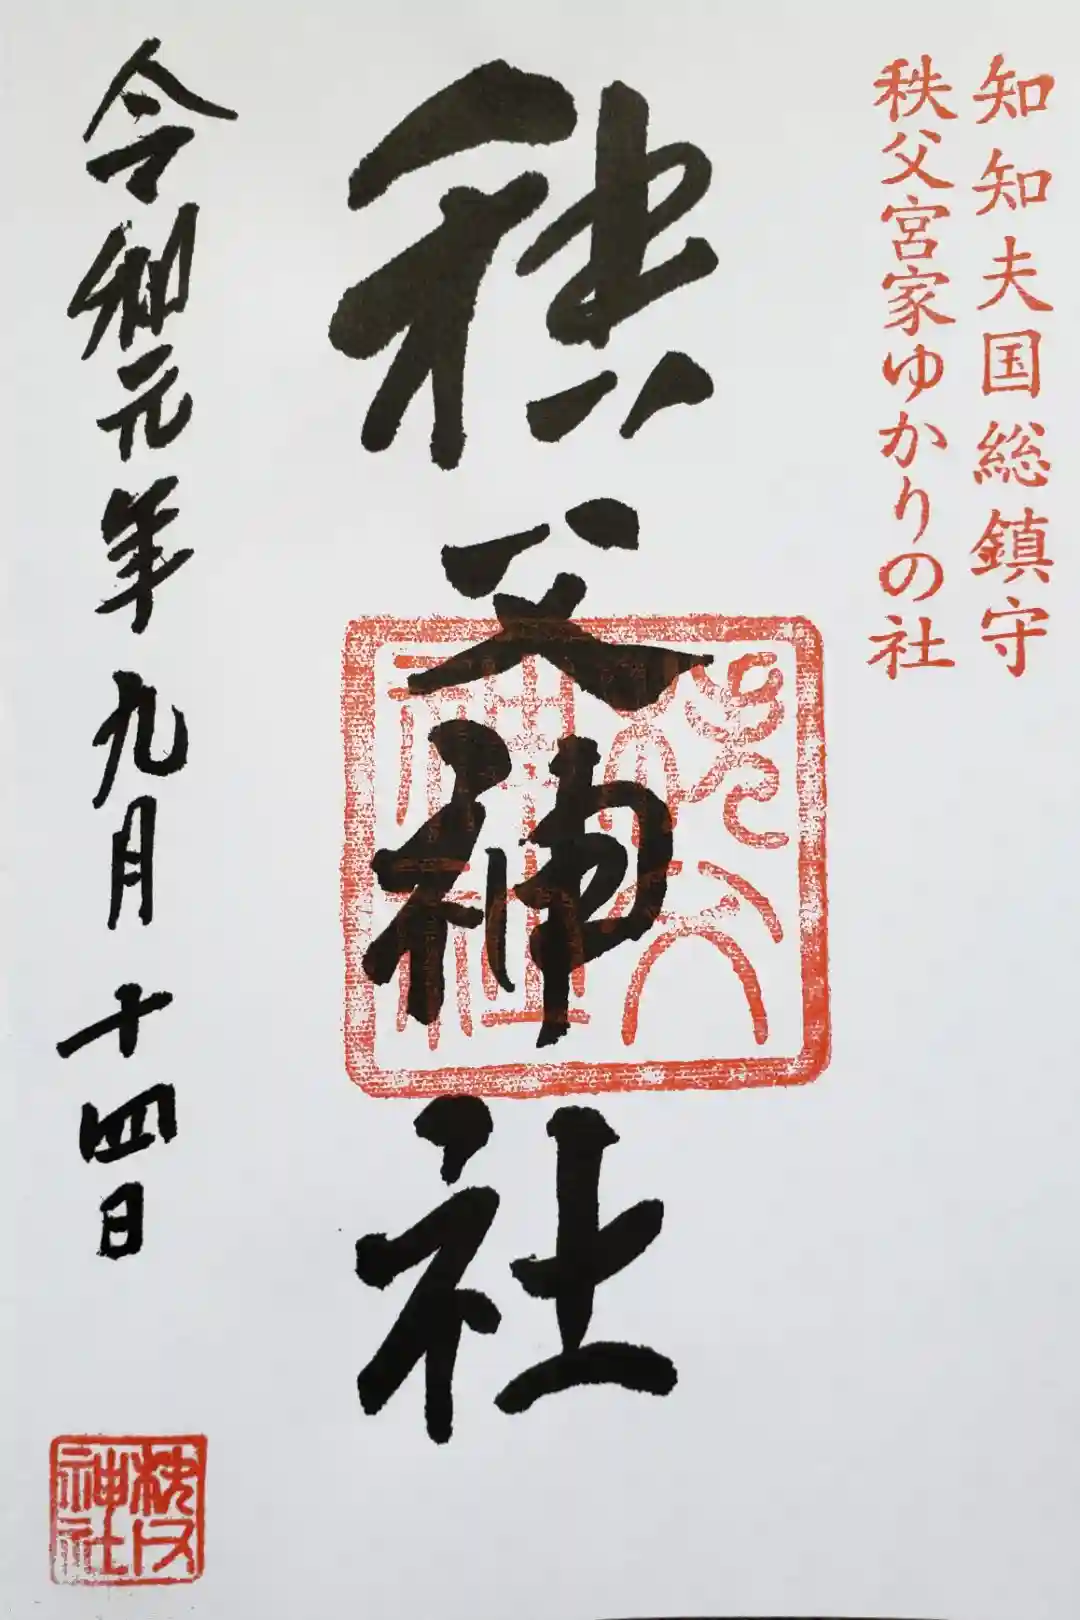 知知夫国総鎮守
秩父宮家ゆかりの社
秩父神社
秩父神社
令和元年九月十四日
秩父神社